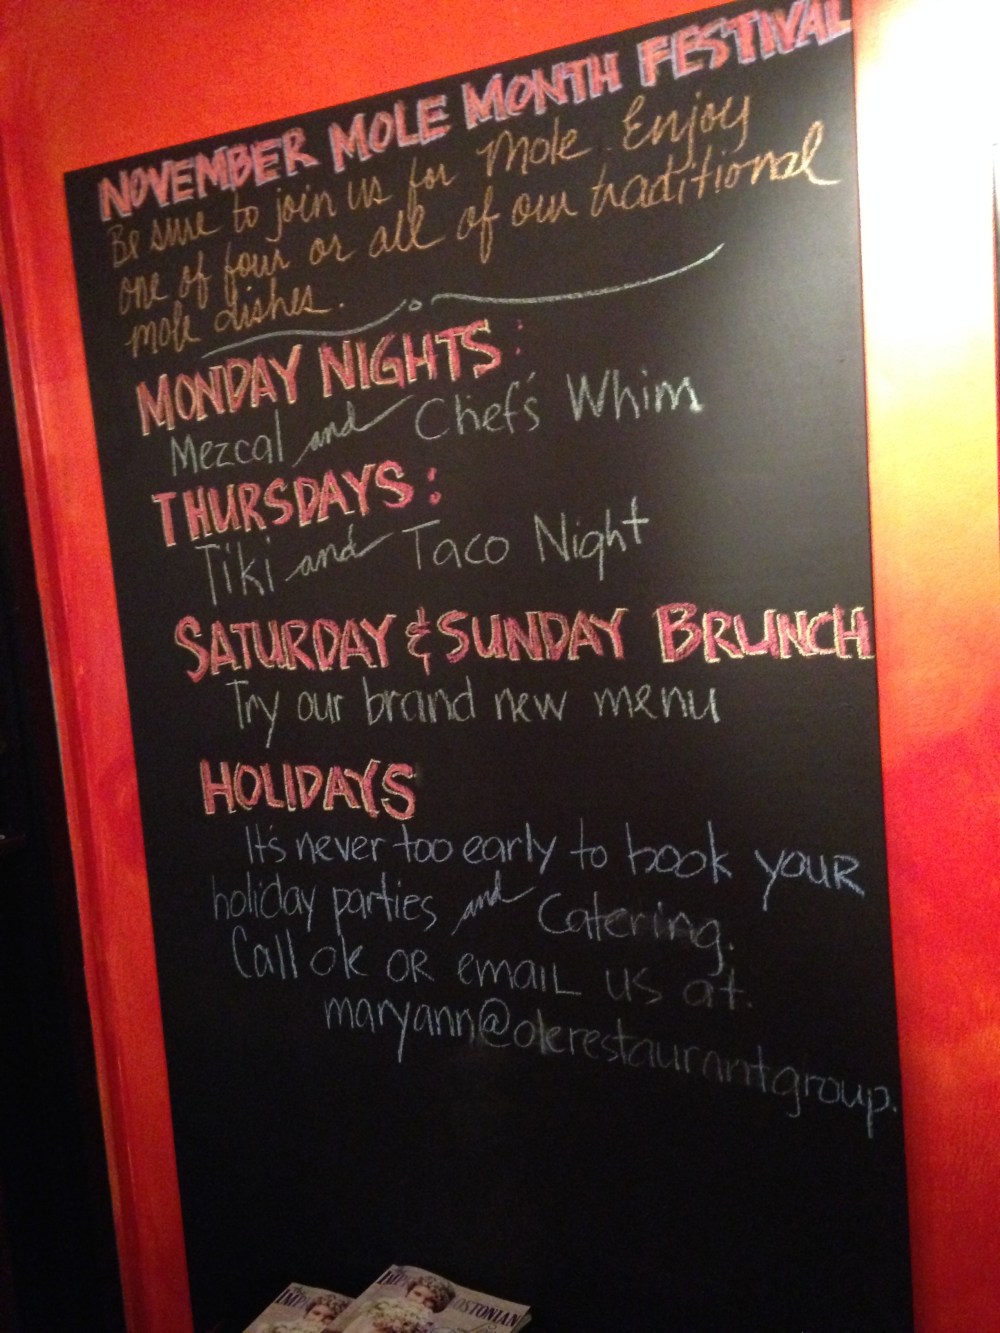 NOVEMBER MOLE MONTH FESTIVAL
Be sure to join us for Mole. Enjoy
one of four or all of our traditional
mole dishes.
MONDAY NIGHTS:
Mezcal and Chef's Whim
THURSDAYS:
Tiki and Taco Night
SATURDAY & SUNDAY BRUNCH
Try our brand new menu
HOLIDAYS
It's never too early to book YOUR
holiday parties and Catering.
Call ok OR EMAIL us at.
maryann@olerestaurantgroup.
IMP
IMP OSTONIAN